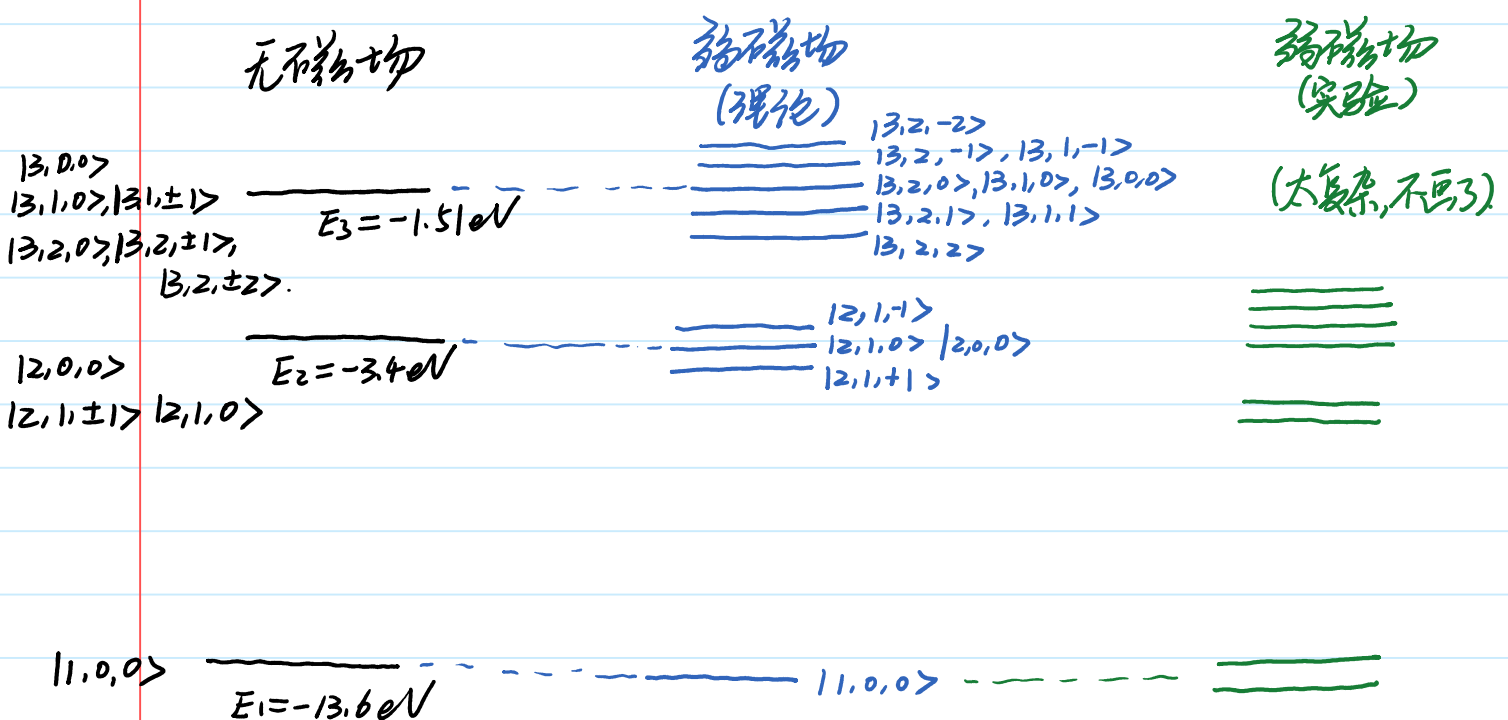 无磁场
|3,0,0>
|3,1,0>,|3,1,±1>
|3,2,0>,|3,2,±1>,
|3,2,±2>.
E₃=-1.51eV
|2,0,0>
|2,1,±1> |2,1,0>
E₂=-3.4eV
|1,0,0>
E₁=-13.6eV
弱磁场
(理论)
|3,2,-2>
|3,2,-1>, |3,1,-1>
|3,2,0>,|3,1,0>, |3,0,0>
|3,2,1>, |3,1,1>
|3,2,2>
|2,1,-1>
|2,1,0> |2,0,0>
|2,1,+1>
|1,0,0>
弱磁场
(实验)
(太复杂,不画了)